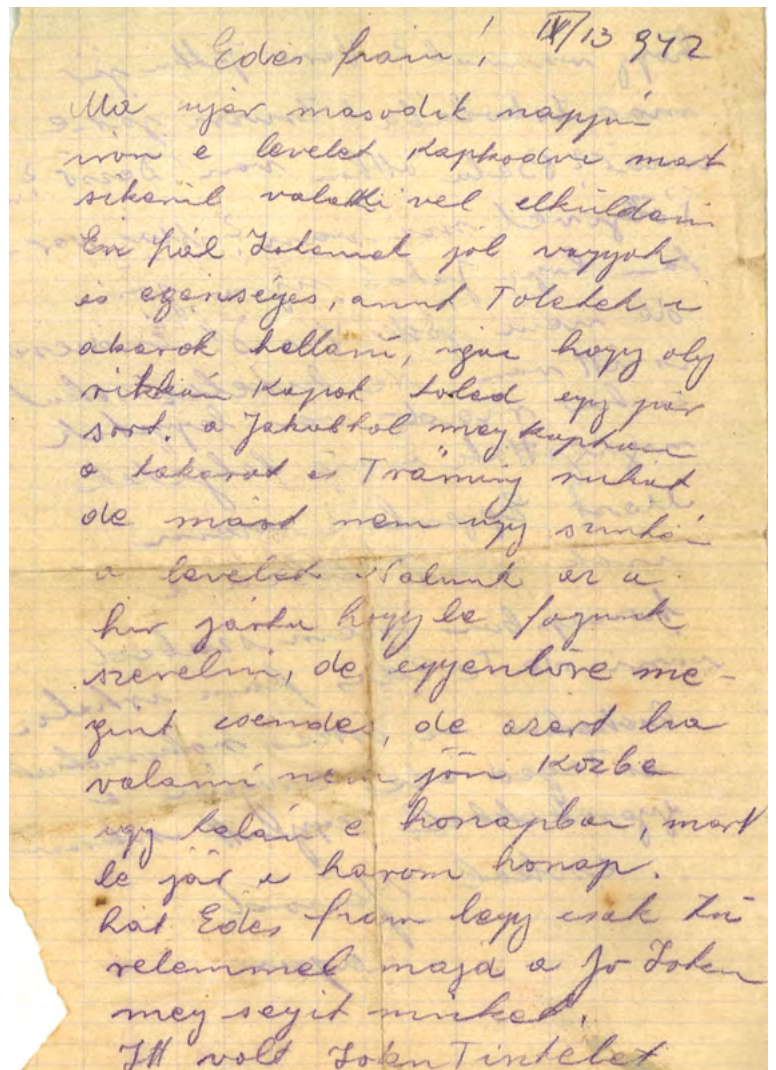 IX/13 942
Edes fiam!
Ma ujár masodik napján
irom e levelet Kapkodva mert
sikerül valakivel elküldeni
Én hál Istenek jól vagyok
és egenséges, amit Toletek is
akarok hallani, igaz hogy oly
ritkán Kapok toled egy pár
sort. a Jakabtol megkaptam
a takarot es Träning ruhat
de mást nem ugy szintén
a levelet Nalunk az a
hir járta hogy le fogunk
szerelni, de egyenlöre me-
gint csendes, de azert ha
valami nem jön Közbe
ugy talán e honapban, mert
le jár a harom honap.
hát Edes fiam légy csak tü
relemmel majd a Jo Isten
meg segit minket.
Itt volt Isten Tisztelet